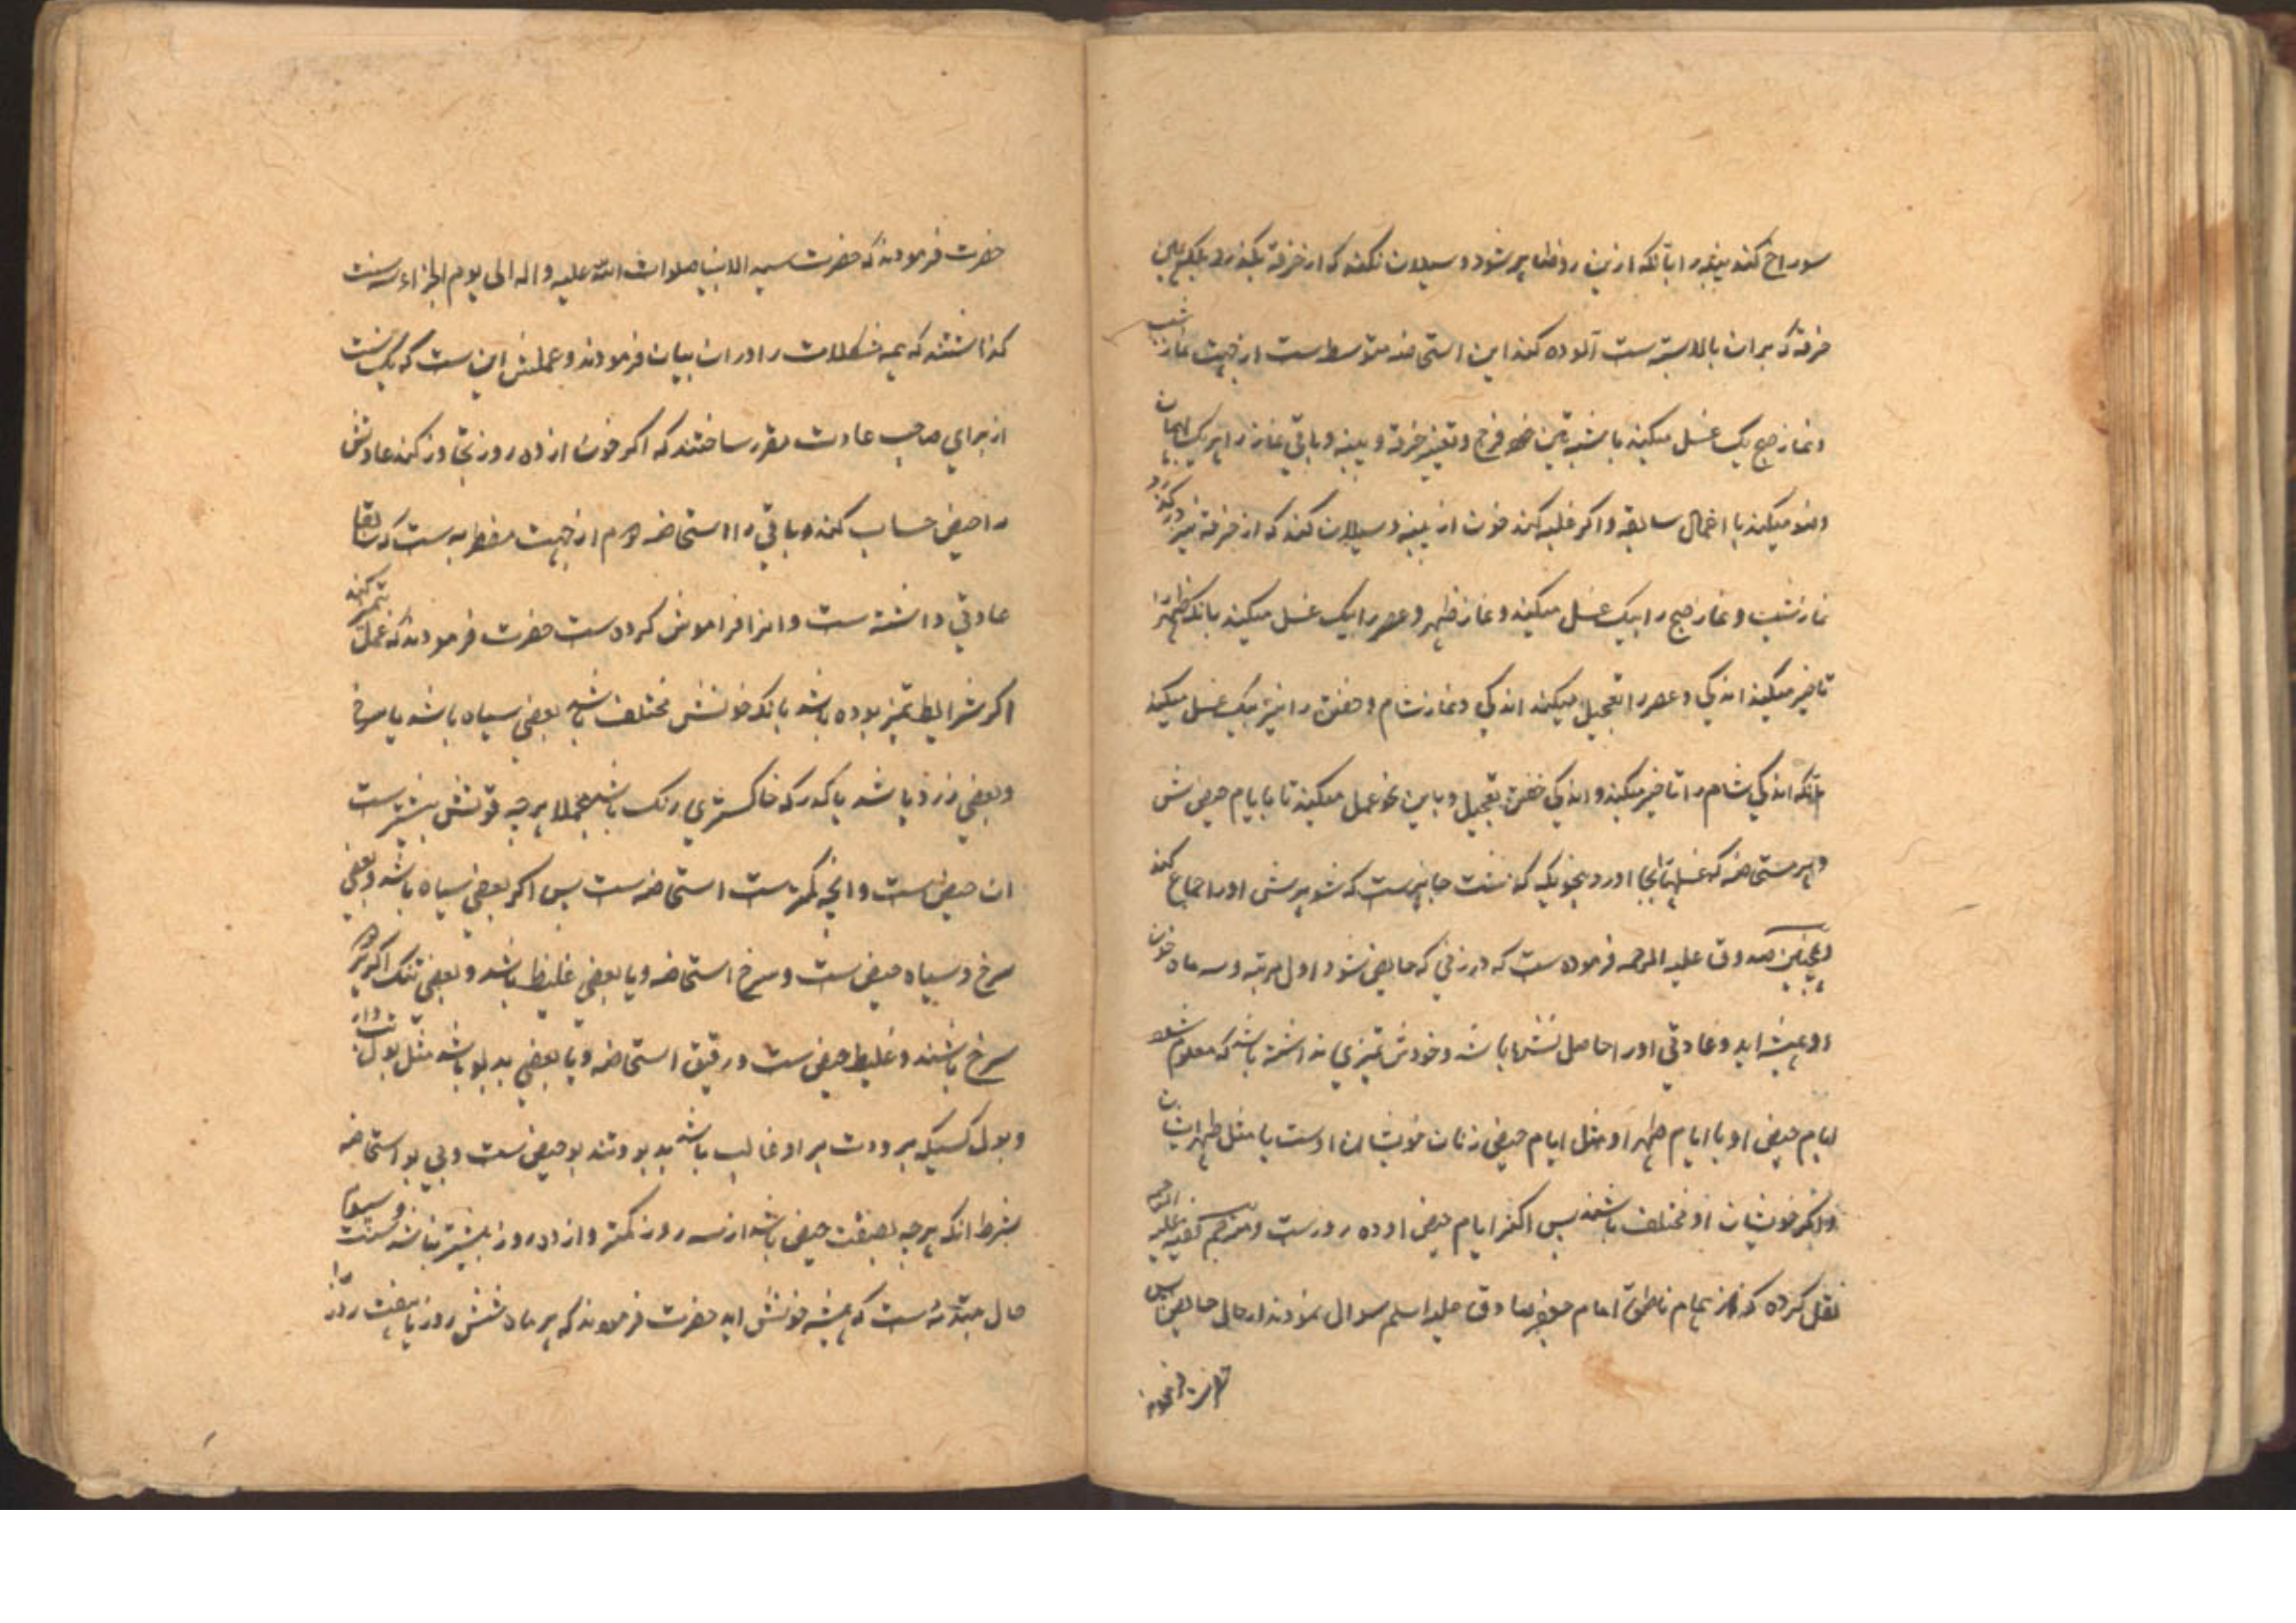 سوراخ کند پنبه را بآنکه ازین رو ظاهر شود و سیلان نکند که از خرقه بگذرد بلکه همین
خرقه که بر ان بالا بسته است آلوده کند این استحاضه متوسط است از جهت نماز شب
و نماز صبح یک غسل میکند با شستن فرج و تغییر خرقه و پنبه و باقی نماز را هر یک بهمان
وضو میکند با اعمال سابقه و اکر غلبه کند خون از پنبه و سیلان کند که از خرقه نیز درگذرد
نماز شب و نماز صبح را بیک غسل میکند و نماز ظهر و عصر را بیک غسل میکند بانکه ظهر را
تاخیر میکند اندکی و عصر را تعجیل میکند اندکی و نماز شام و خفتن را نیز بیک غسل میکند
بآنکه اندکی شام را تاخیر میکند و اندکی خفتن تعجیل و باین نحو عمل میکند تا بایام حیض ش
و هر مستحاضه که غسلها بجا اورد بنحویکه کذشت جایز ست که شوهرش او را جماع کند
و همچنین صدوق علیه الرحمه فرموده ست که در زنی که حایض شود اول مرتبه و سه ماه خون
او همیشه اید و عادتی او را حاصل نشده باشد و خودش تمیزی نداشته باشد که معلوم شود
ایام حیض او یا ایام طهر او مثل ایام حیض زنان خویشان اوست یا مثل طهر ایشان
و اکر خویشان او مختلف باشند پس اکثر ایام حیض او ده روز ست و مترجم کفیه علیه الرحمه
نقل کرده که از امام ناطق امام جعفر صادق علیه السلم سوال نمودند از حال حایض پس
حضرت فرمودند
حضرت فرمودند که حضرت سید الانبیا صلوات الله علیه و اله الی یوم الجزاء سه سنت
کذاشتند که همه مشکلات را در ان بیان فرمودند و عملش این ست که یک سنت
از برای صاحب عادت مقرر ساختند که اکر خون از ده روز تجاوز کند عادتش
را حیض حساب کند و باقی را استحاضه دوم از جهت مضطربه ست که سابقا
عادتی داشته ست و انرا فراموش کرده ست حضرت فرمودند که عمل بتمیز کند
اکر شرایط تمیز بوده باشد بانکه خونش مختلف باشد بعضی سیاه باشد یا سرخ
و بعضی زرد باشد یا کدر که خاکستری رنک باشد مجملا هر چه قوتش بیشتر ست
ان حیض ست و انچه کمتر ست استحاضه ست پس اکر بعضی سیاه باشد و بعضی
سرخ و سیاه حیض ست و سرخ استحاضه و یا بعضی غلیظ باشد و بعضی تنک اکر هر دو
سرخ باشند و غلیظ حیض ست و رقیق استحاضه و یا بعضی بدبو باشد مثل بول تب دار
و بول کسیکه برودت بر او غالب باشد بدبو و تند بو حیض ست و بی بو استحاضه
بشرط انکه هر چه بصفت حیض باشد از سه روز کمتر و از ده روز بیشتر نباشد و سنت سیوم
حال مبتدئه ست که همیشه خونش اید حضرت فرمودند که هر ماه شش روز یا هفت روز را